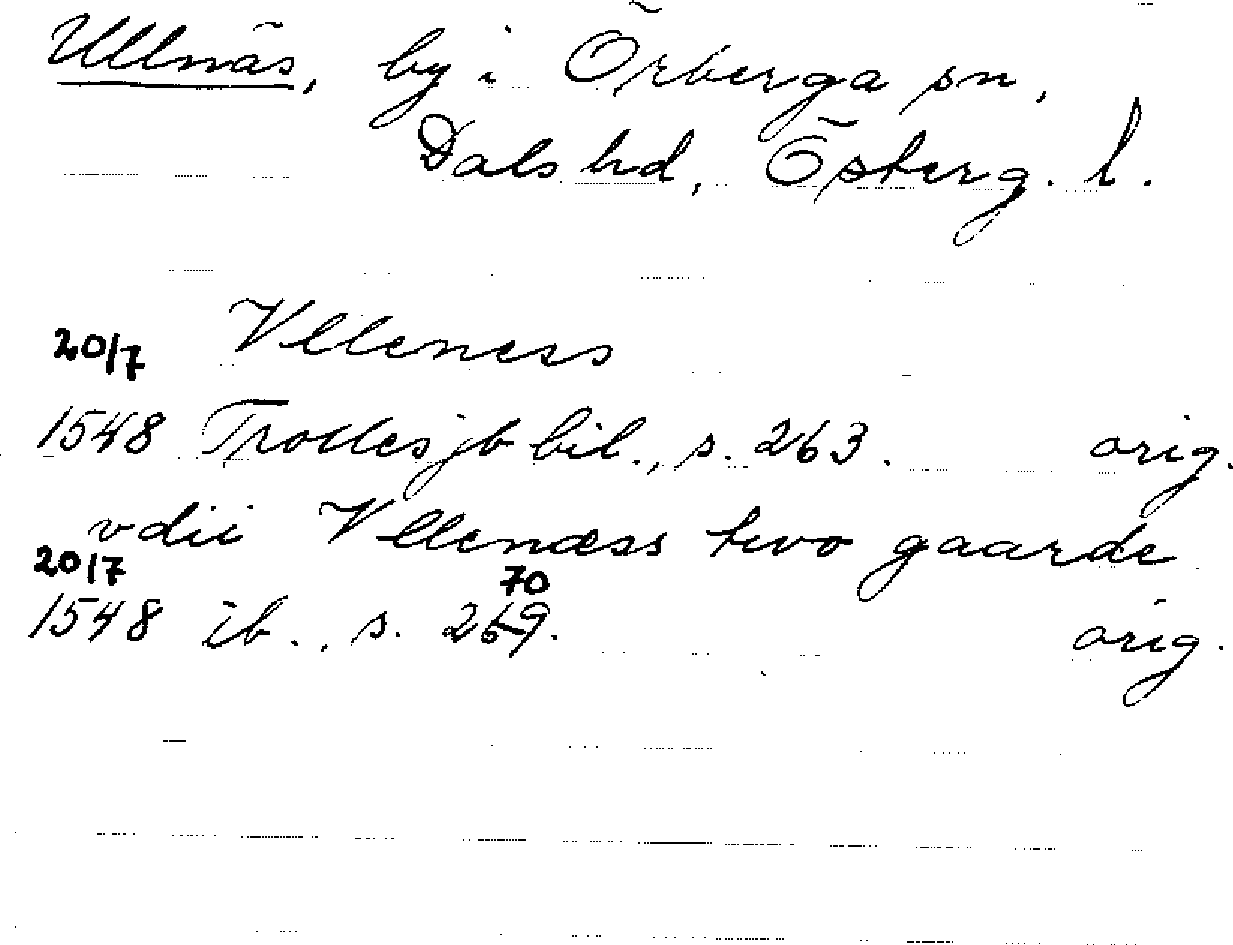 Ullnäs, by i Örberga sn,
Dals hd, Österg. l.
20/7 Vlleness
1548 Trolles jb bil., s. 263. orig.
vdii Vllenæss two gaarde
20/7 70
1548 ib., s. 269. orig.